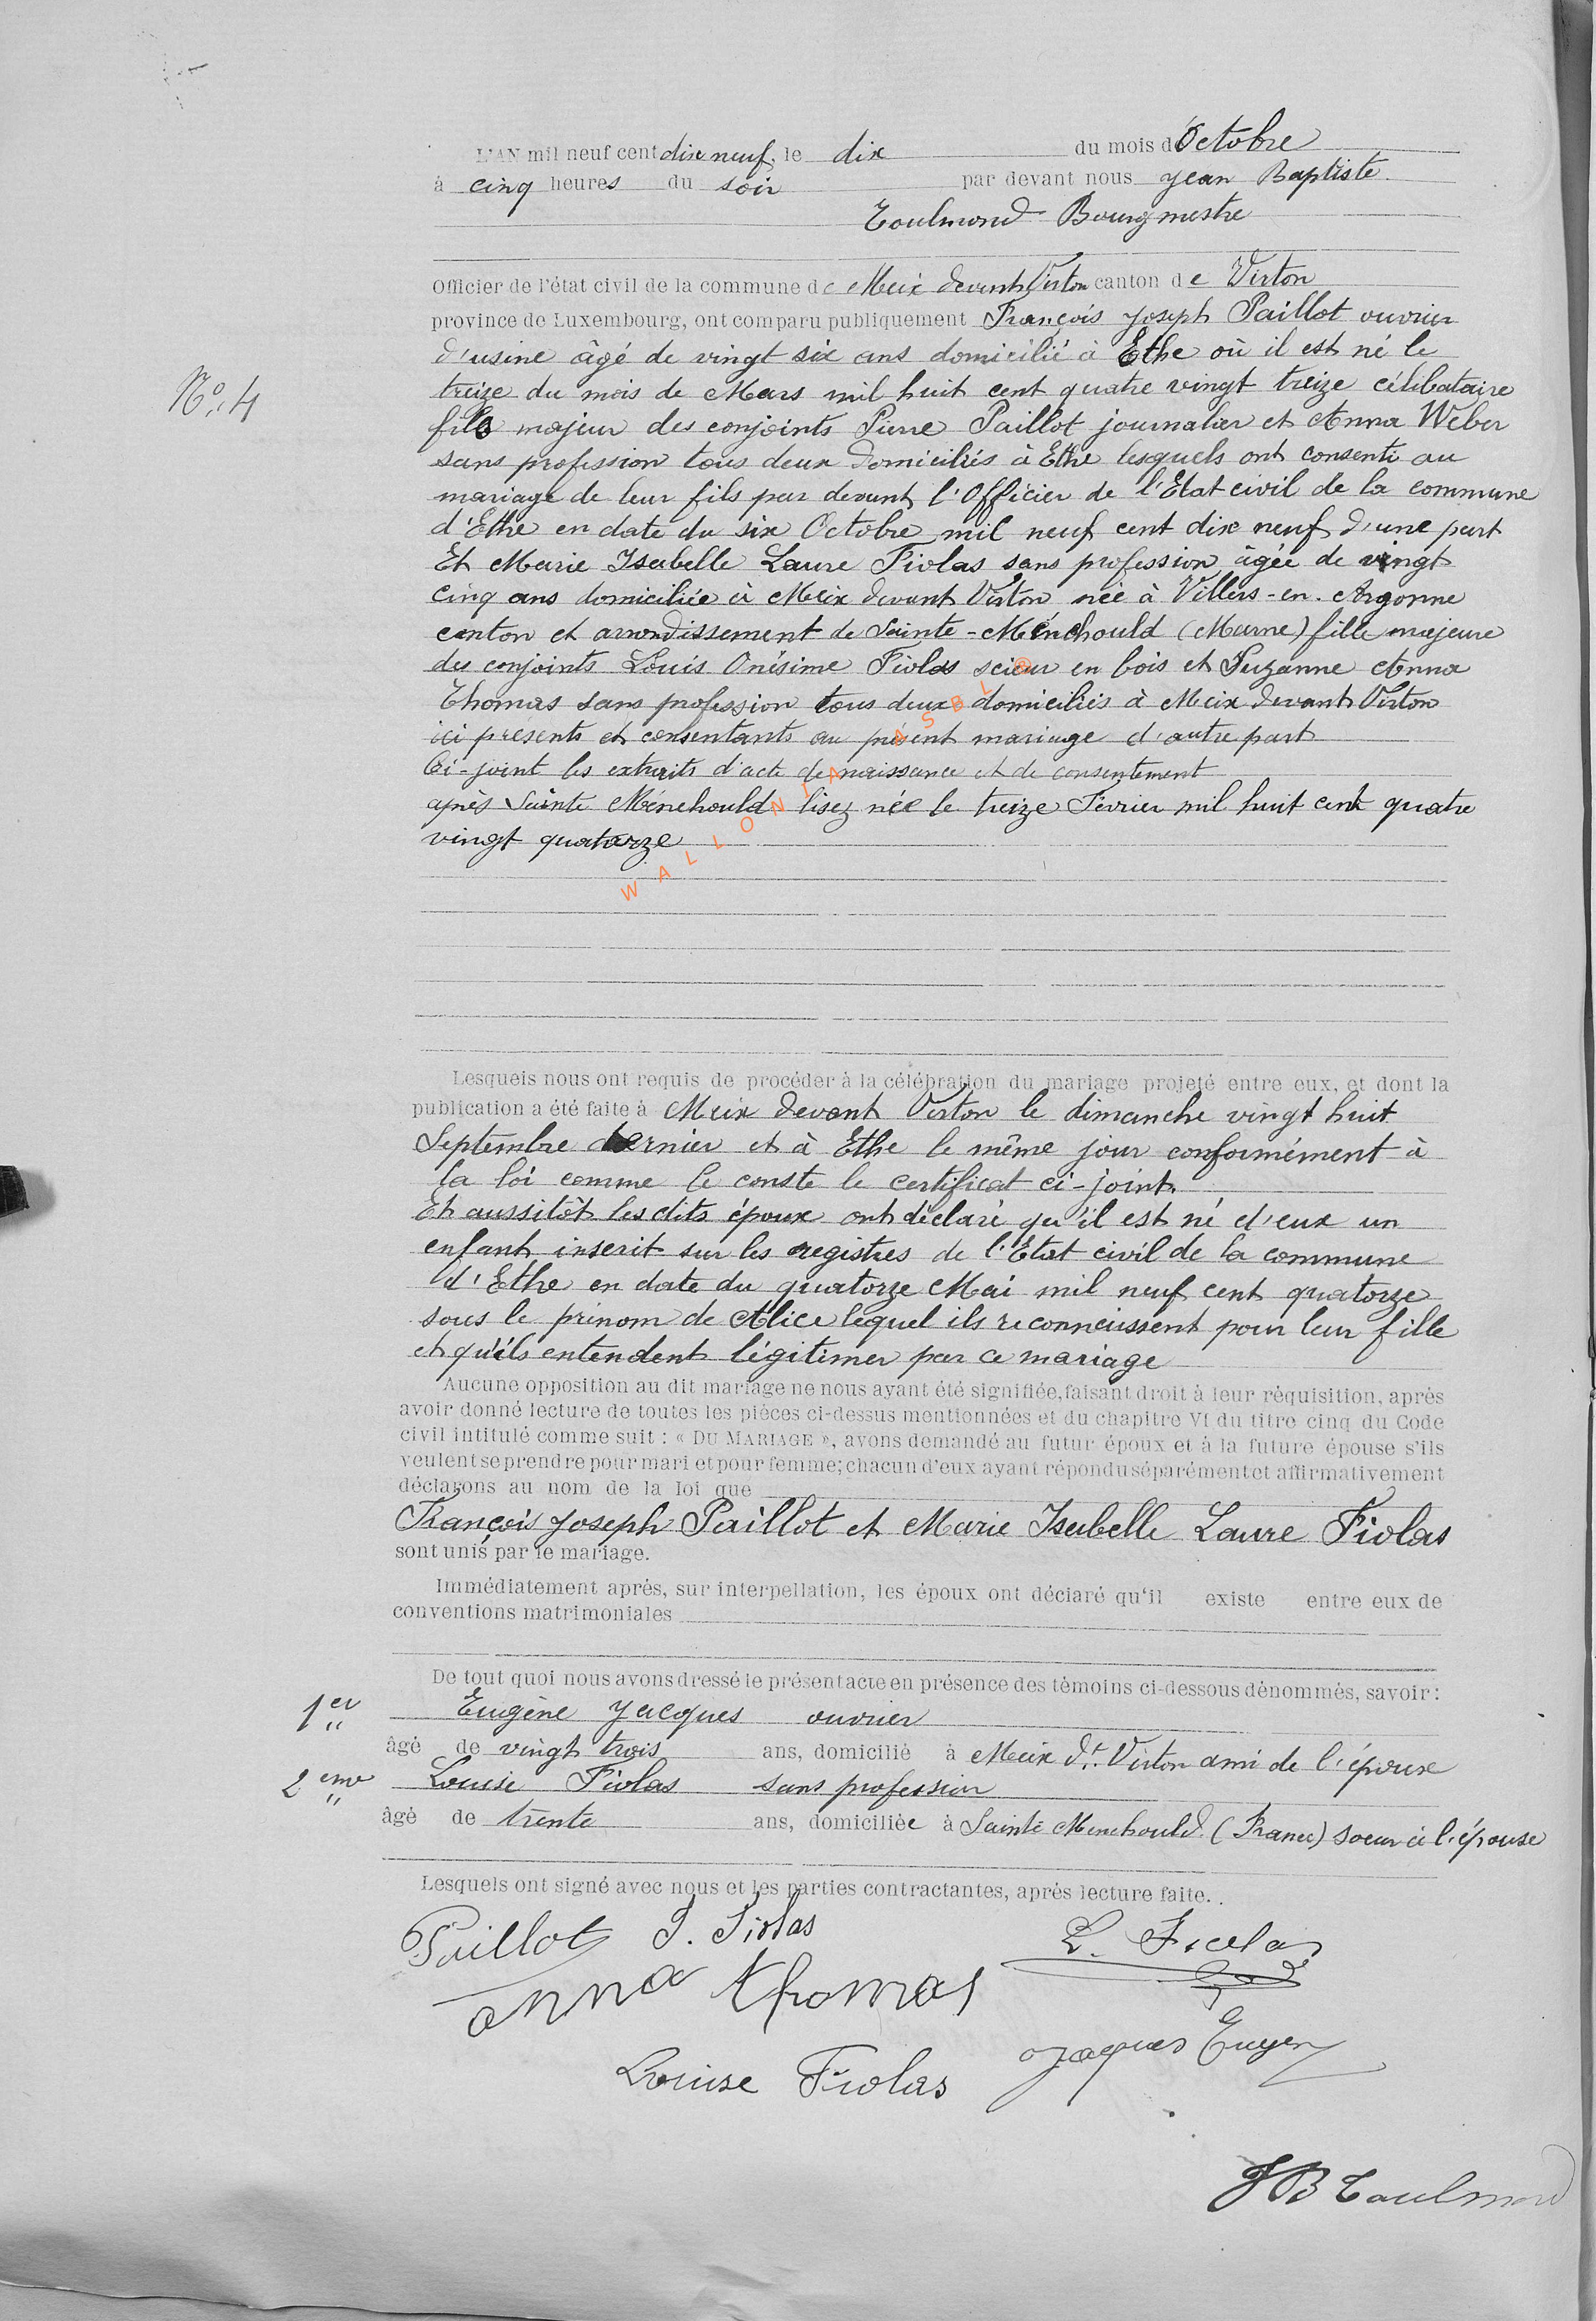 L'AN mil neuf cent dix neuf, le dix du mois d'Octobre
à cinq heures du soir par devant nous Jean Baptiste
Toulmond Bourgmestre
Officier de l'état civil de la commune de Meix devant Virton canton de Virton
province de Luxembourg, ont comparu publiquement François Joseph Paillot ouvrier
d'usine âgé de vingt six ans domicilié à Ethe où il est né le
N° 4
treize du mois de Mars mil huit cent quatre vingt treize célibataire
fils majeur des conjoints Pierre Paillot journalier et Anna Weber
sans profession tous deux domiciliés à Ethe lesquels ont consenti au
mariage de leur fils par devant l'Officier de l'Etat civil de la commune
d'Ethe en date du six Octobre mil neuf cent dix neuf d'une part
Et Marie Isabelle Laure Fiolas sans profession âgée de vingt
cinq ans domiciliée à Meix devant Virton née à Villers-en-Argonne
canton et arrondissement de Sainte-Ménehould (Marne) fille majeure
des conjoints Louis Onésime Fiolas scieur en bois et Suzanne Anna
Thomas sans profession tous deux domiciliés à Meix devant Virton
ici présents et consentants au présent mariage d'autre part
Ci-joint les extraits d'acte de naissance et de consentement
après Sainte Ménehould lisez née le treize Février mil huit cent quatre
vingt quatorze
WALLONIA ASBL ©
Lesquels nous ont requis de procéder à la célébration du mariage projeté entre eux, et dont la
publication a été faite à Meix devant Virton le dimanche vingt huit
Septembre dernier et à Ethe le même jour conformément à
la loi comme le conste le certificat ci-joint.
Et aussitôt les dits époux ont déclaré qu'il est né d'eux un
enfant inscrit sur les registres de l'Etat civil de la commune
d'Ethe en date du quatorze Mai mil neuf cent quatorze
sous le prénom de Alice lequel ils reconnaissent pour leur fille
et qu'ils entendent légitimer par ce mariage
Aucune opposition au dit mariage ne nous ayant été signifiée, faisant droit à leur réquisition, après
avoir donné lecture de toutes les pièces ci-dessus mentionnées et du chapitre VI du titre cinq du Code
civil intitulé comme suit : « DU MARIAGE », avons demandé au futur époux et à la future épouse s'ils
veulent se prendre pour mari et pour femme; chacun d'eux ayant répondu séparément et affirmativement
déclarons au nom de la loi que
François Joseph Paillot et Marie Isabelle Laure Fiolas
sont unis par le mariage.
Immédiatement après, sur interpellation, les époux ont déclaré qu'il existe entre eux de
conventions matrimoniales
De tout quoi nous avons dressé le présent acte en présence des témoins ci-dessous dénommés, savoir :
1er Eugène Jacques ouvrier
âgé de vingt trois ans, domicilié à Meix dt Virton ami de l'époux
2eme Louise Fiolas sans profession
âgé de trente ans, domiciliée à Sainte Menehould (France) soeur à l'épouse
Lesquels ont signé avec nous et les parties contractantes, après lecture faite.
Paillot I. Fiolas L. Fiolas
anna thomas
Louise Fiolas Jaques Eugen
JB Toulmond